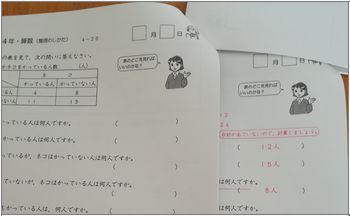 4年・算数 (整理のしかた) 4－20
月 日
の表を見て、次の問いに答えなさい。
ネコをかっている人数 (人)
かっている人 かっていない人
いる人 4 8
いない人 11 13
表のどこを見れば
いいのかな？
っている人は何人ですか。 ( )
かっている人は何人ですか。 ( )
ているが、ネコはかっていない人は何人ですか。
( )
ていないが、ネコはかっている人は何人ですか。
( )
かっている人は、何人ですか。 (
月 日
表のどこを見れば
いいのかな？
合計が出ていないので、計算しましょう。
( 12人 )
( 15人 )
は何人ですか。
( 8人 )
は何人ですか。